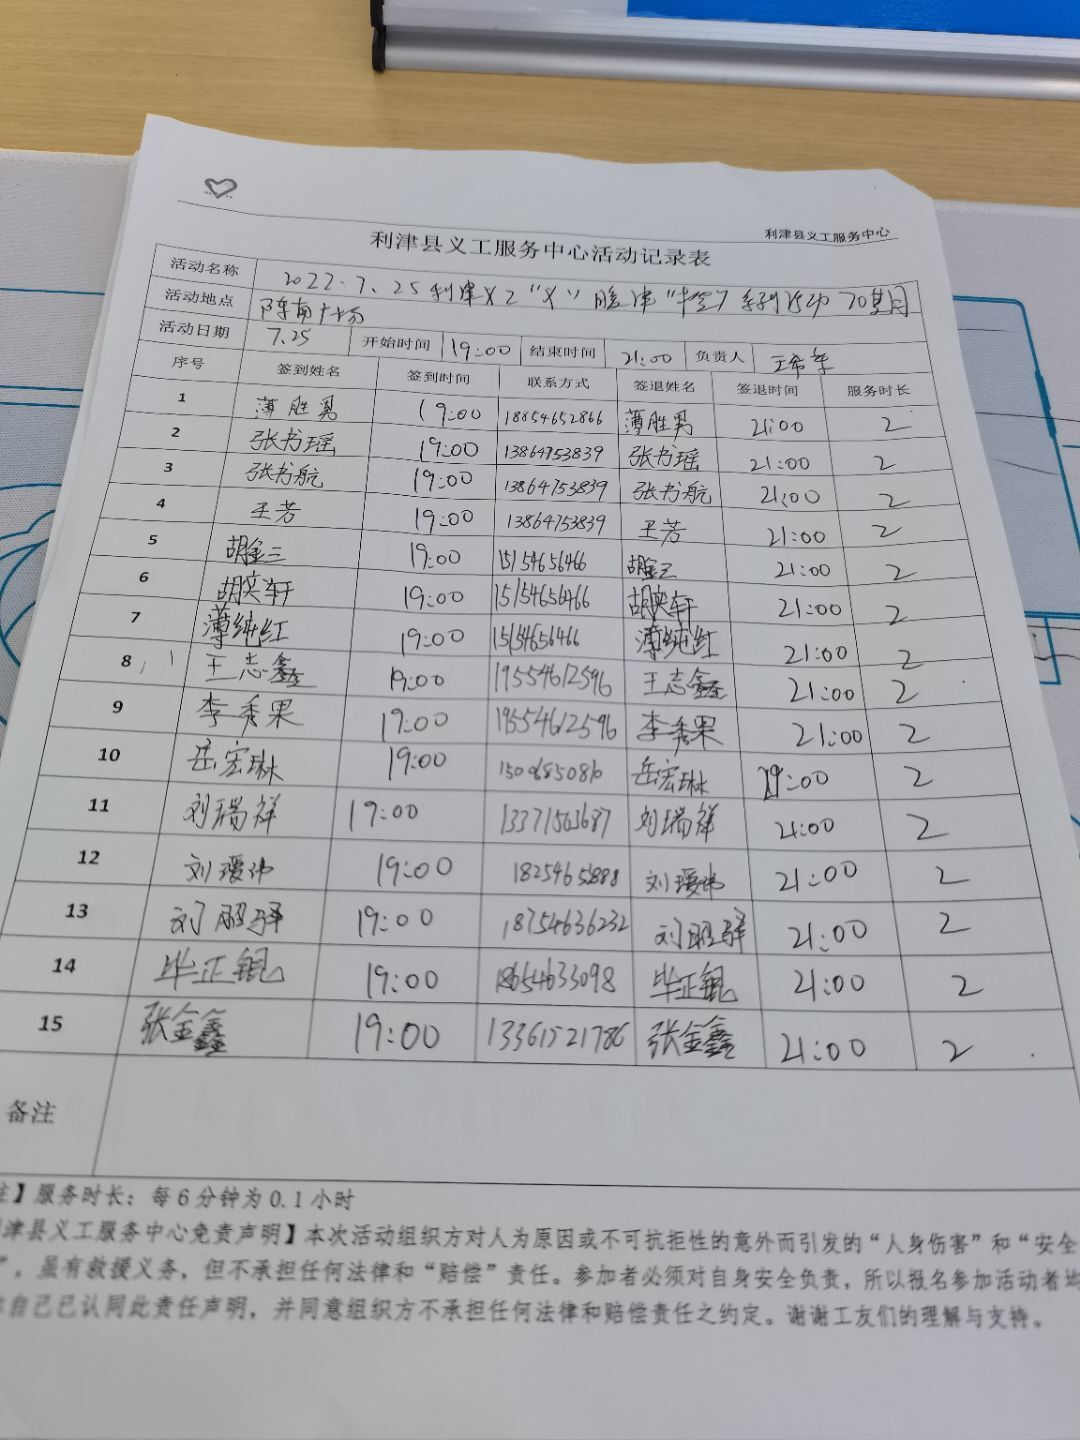 利津县义工服务中心
利津县义工服务中心活动记录表
活动名称 2022.7.25利津义工"义"脸津"
活动地点 广场
活动日期 7.25 开始时间 19:00 结束时间 21:00 负责人
序号 签到姓名 签到时间 联系方式 签退姓名 签退时间 服务时长
1 薄胜勇 19:00 18854652866 薄胜勇 21:00 2
2 张书瑶 19:00 13864753839 张书瑶 21:00 2
3 张书航 19:00 13864753839 张书航 21:00 2
4 王芳 19:00 13864753839 王芳 21:00 2
5 胡金三 19:00 15154656466 胡金三 21:00 2
6 胡奕轩 19:00 15154656466 胡奕轩 21:00 2
7 薄纯红 19:00 15154656466 薄纯红 21:00 2
8 王志鑫 19:00 19554612596 王志鑫 21:00 2
9 李秀果 19:00 19554612596 李秀果 21:00 2
10 岳宏琳 19:00 岳宏琳 2
11 刘瑞祥 19:00 13371563687 刘瑞祥 21:00 2
12 刘瑷玮 19:00 刘瑷玮 21:00 2
13 19:00 18754636232 21:00 2
14 毕正锟 19:00 18654633098 毕正锟 21:00 2
15 张金鑫 19:00 13361521786 张金鑫 21:00 2
备注
注】服务时长：每6分钟为0.1小时
津县义工服务中心免责声明】本次活动组织方对人为原因或不可抗拒性的意外而引发的“人身伤害”和“安全
”，虽有救援义务，但不承担任何法律和“赔偿”责任。参加者必须对自身安全负责，所以报名参加活动者均
自己已认同此责任声明，并同意组织方不承担任何法律和赔偿责任之约定。谢谢工友们的理解与支持。